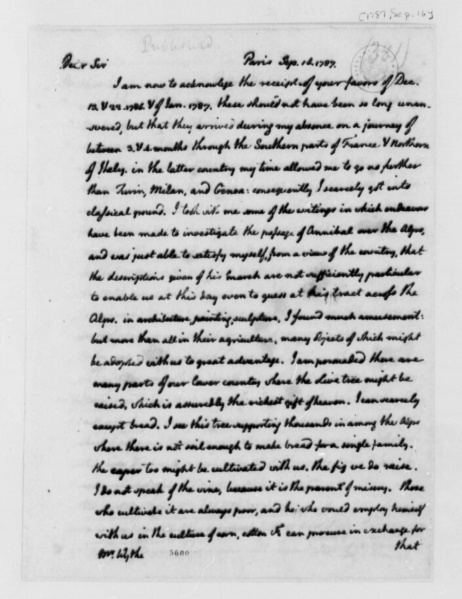 [1787, Sep. 16]
Published
Dear Sir Paris Sep. 16. 1787.
I am now to acknolege the receipt of your favors of Dec.
13. & 22. 1786. & of Jan. 1787. these should not have been so long unan-
swered, but that they arrived during my absence on a journey of
between 3. & 4. months through the Southern parts of France & Northern
of Italy. in the latter country my time allowed me to go no further
than Turin, Milan, and Genoa: consequently I scarcely got into
classical ground. I took with me some of the writings in which endeavors
have been made to investigate the passage of Annibal over the Alps,
and was just able to satisfy myself, from a view of the country, that
the descriptions given of his march are not sufficiently particular
to enable us at this day even to guess at his tract across the
Alps. in architecture, painting, sculpture, I found much amusement:
but more than all in their agriculture, many objects of which might
be adopted with us to great advantage. I am persuaded there are
many parts of our lower country where the olive tree might be
raised, which is assuredly the richest gift of heaven. I can scarcely
except bread. I see this tree supporting thousands in among the Alps
where there is not soil enough to make bread for a single family.
the caper too might be cultivated with us. the fig we do raise.
I do not speak of the vine, because it is the parent of misery. those
who cultivate it are always poor, and he who would employ himself
with us in the culture of corn, cotton &c can procure in exchange for
Mr. Wythe 5600 that